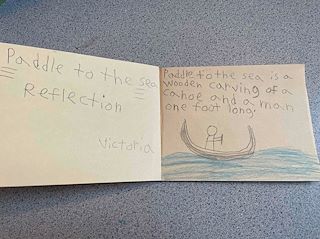 Paddle to the sea
Reflection
Victoria
Paddle to the sea is a
wooden carving of a
canoe and a man
one foot long.